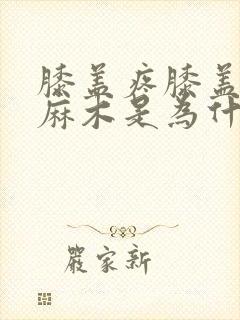 膝盖疼膝盖
麻木是為什
嚴家新